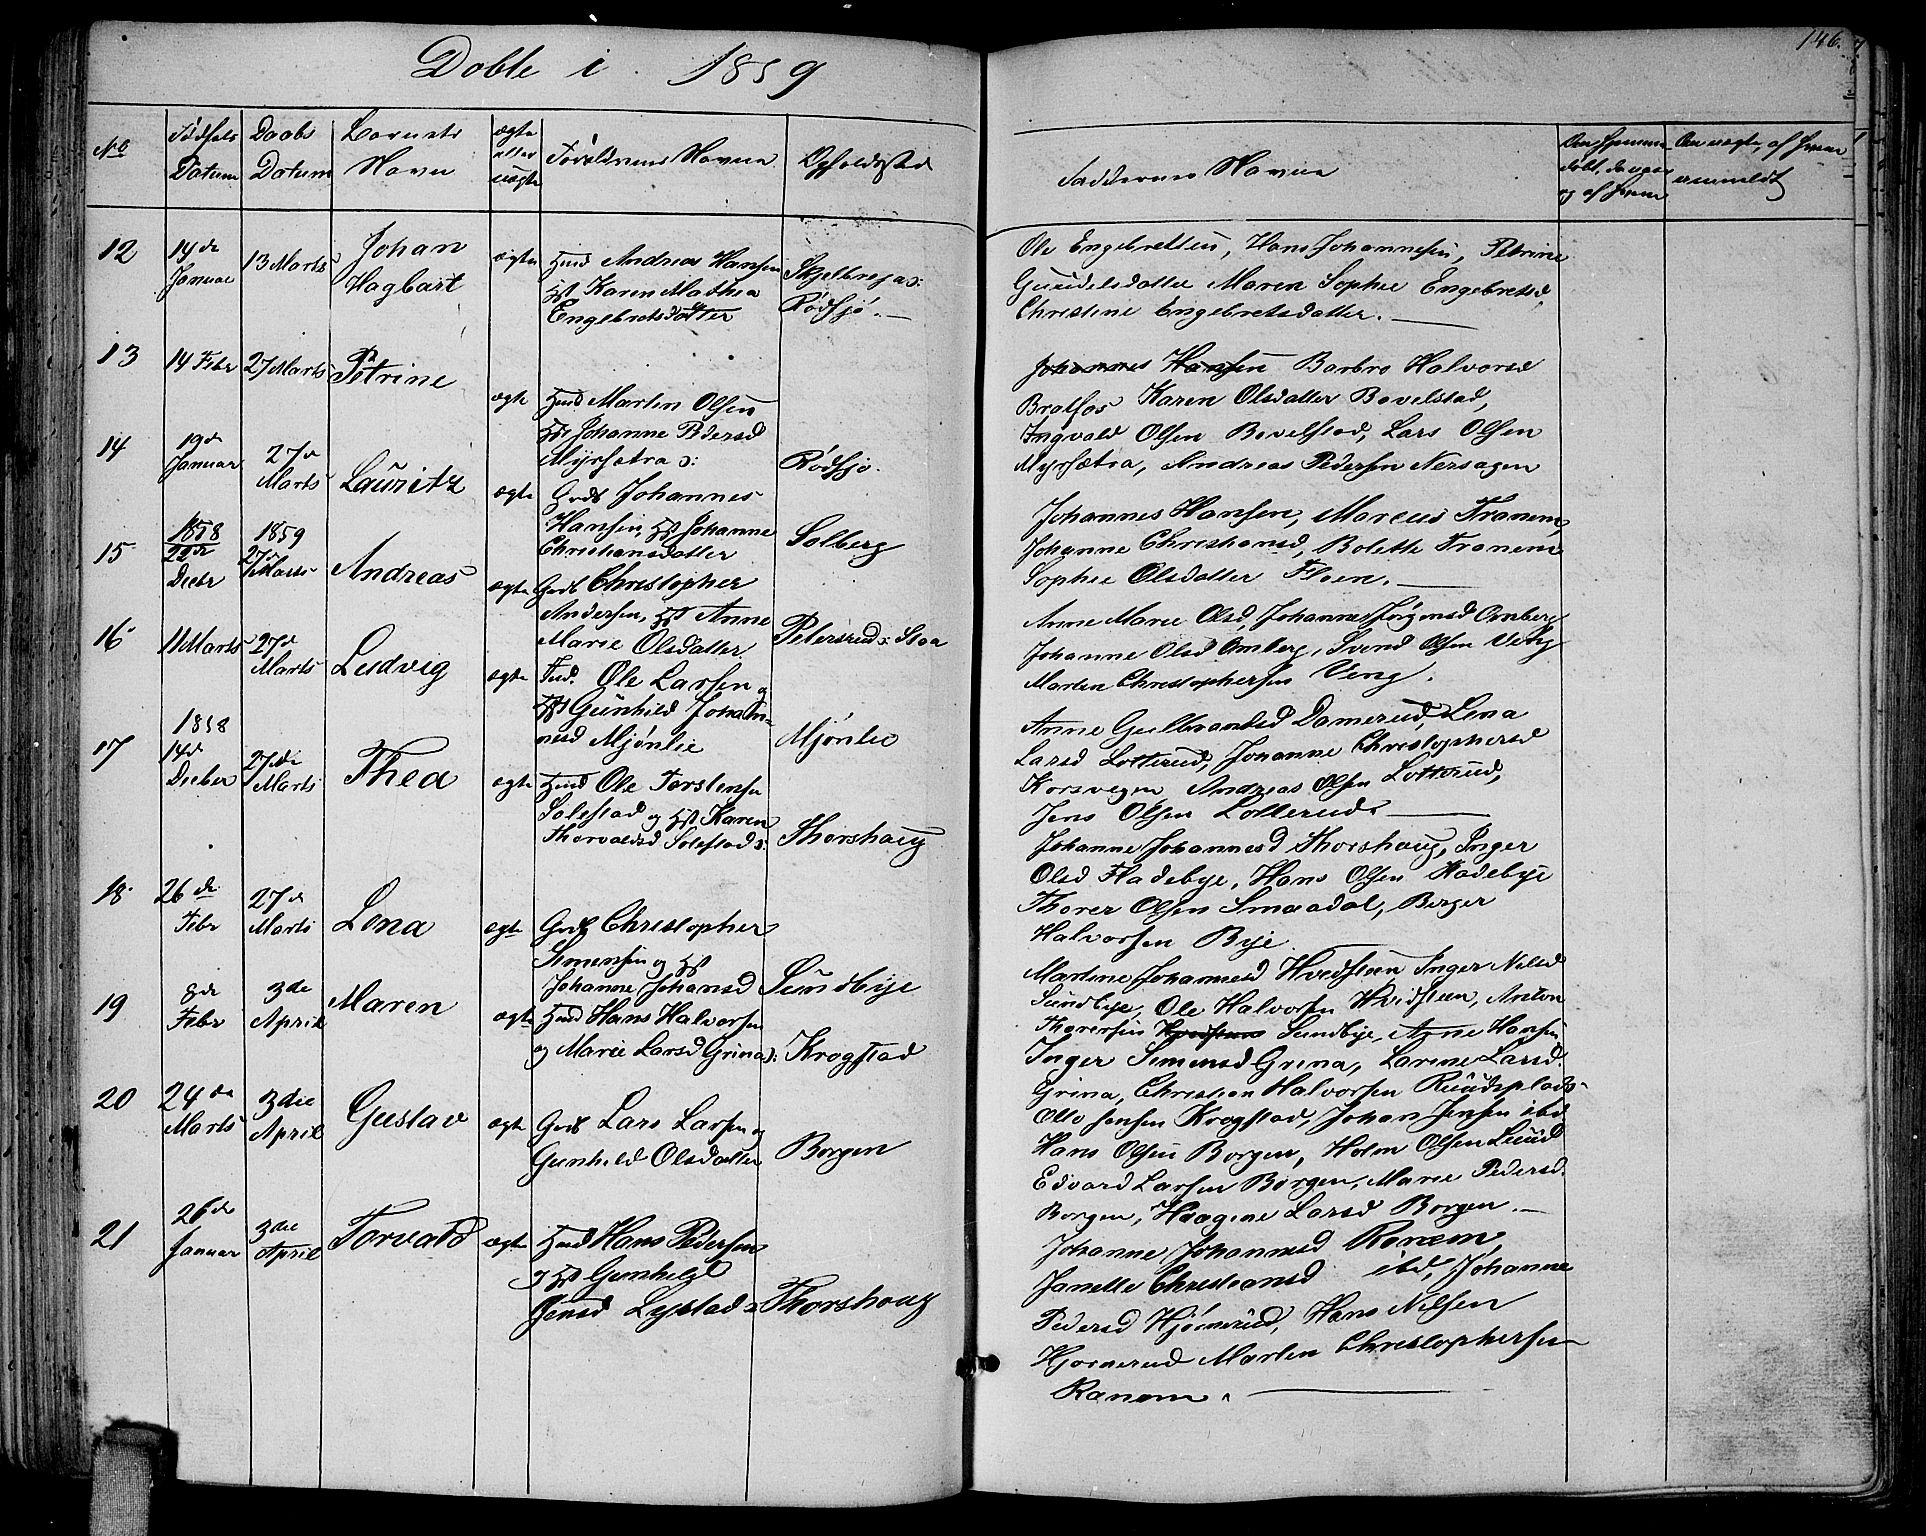 Døbte i 1859
146.
No
Fødsels Datum
Daabs Datum
Barnets Navn
ægte eller uægte
Forældrenes Navne
Opholdssted
Faddernes Navne
12
14de Januar
13 Marts
Johan Hagbart
ægte
Huusmd Andreas Hansen
Hst Karen Mathea
Engebretsdatter
Skjelbreja:
Rødsjø.
Ole Engebretsen, Hans Johannesen, Petrine
Gundelsdatter Maren Sophie Engebretsd,
Christine Engebretsdatter.
13
14 Febr
27 Marts
Petrine
ægte
Martin Olsen
Hst Johanne Pedersd
Myrsætra :
Rødsjø.
Johannes Hansen Barbro Halvorsd
Bratfos Karen Olsdatter Bovelstad,
Ingvald Olsen Bovelstad, Lars Olsen
Myrsætra, Andreas Pedersen Nersagen
14
19de Januar
27de Marts
Lauritz
ægte
Grdb Johannes
Hansen, Hst Johanne
Christiansdatter
Solberg
Johannes Hansen, Marcus Tranem,
Johanne Christiansd, Bolette Tranem
Sophie Olsdatter Floen.
15
1858
22de Decbr
1859
27de Marts
Andreas
ægte
Grdb Christopher
Andersen, Hst Anne
Marie Olsdatter
Petersrud: Staa
Anne Marie Olsd, Johanne Jørgensd Omberg
Johanne Olsd Omberg, Svend Olsen Veng
Martin Christophersen Veng.
16
11 Marts
27de Marts
Ludvig
ægte
Ole Larsen og
Hst Gunhild Johan-
nesd Mjønlie
Mjønlie
Anne Gulbrandsd Damerud, Lena
Larsd Lotterud, Johanne Christophersd
Korsvegen Andreas Olsen Lotterud,
Jens Olsen Lotterud.
17
1858
14de Decber
27de Marts
Thea
ægte
Ole Torstensen
Solestad og Hst Karen
Thorvaldsd Solestad :
Thorshaug
Johanne Johannesd Thorshaug, Inger
Olsd Fladebye, Hans Olsen Fladebye
Thorer Olsen Smaadal, Berger
Halvorsen Bye
18
26de Febr
27de Marts
Lena
ægte
Grdb Christopher
Simensen og Hst
Johanne Johansd
Sundbye
Martine Johannesd Hvidsteen Inger Nilsd
Sundbye, Ole Halvorsen Hvidsteen, Anton
Thorersen Hvidsteen Sundbye,
19
8de Febr
3die April
Maren
ægte
Hans Halvorsen
og Marie Larsd Grina :
Krogstad
Agne Hansen,
Inger Simensd Grina, Larine Larsd
Grina, Christian Halvorsen Ruudsplads
Otto Jensen Krogstad, Johan Jensen ibd
20
24de Marts
3die April
Gustav
ægte
Grdb Lars Larsen og
Gunhild Olsdatter
Borgen
Hans Olsen Borgen, Holm Olsen Lund
Edvard Larsen Borgen, Marie Pedersd.
Borgen, Haagine Larsd Borgen.
21
26de Januar
3die April
Torvald
ægte
Hans Pedersen
og Hst Gunhild
Jensd Lystad
Thorshoug
Johanne Johannesd Ranem
Janette Christiansd ibd, Johanne
Pedersd Hjørnerud, Hans Nilsen
Hjørnerud Martin Christophersen
Ranem.